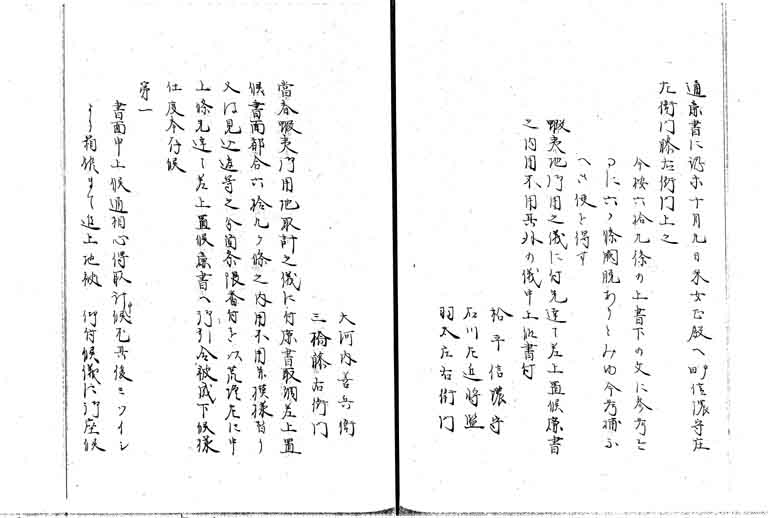 適廉書に添亦十月九日采女正殿へ四時信濃守左
左衛門藤右衛門上之
今按六拾九條の上書下の文に参考と
つに六ヶ條闕脱ありとみゆ今考補ふ
へき便を得す
蝦夷地御用之儀に付先達て差上置候廉書
之内用不用其外の儀申上候書付
松平信濃守
石川左近将監
羽太庄右衛門
大河内善兵衛
三橋藤右衛門
當春蝦夷御用地取計之儀に付廉書取調差上置
候書面都合六拾九ヶ條之内用不用并模様替り
又は見込違等之分箇条限番付を以荒増左に申
上候先達て差上置候廉書へ御引合被成下候様
仕度奉存候
第一
書面申上候通相心得取計候処其後ヲロシヤ
上地被 仰付候儀に御座候